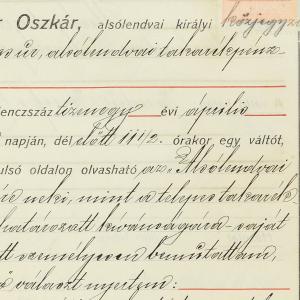 r Oszkár, alsólendvai királyi közjegyző
úr, alsólendvai takarékpénz-
lenczszáz tizenegy évi április
napján, dél előtt 11 1/2. órakor egy váltót,
ulsó oldalon olvasható az „Alsólendvai
neki, mint a teljes takarék
határozott kivánságára saját
tt személyesen bemutattam,
ő választ nyertem: